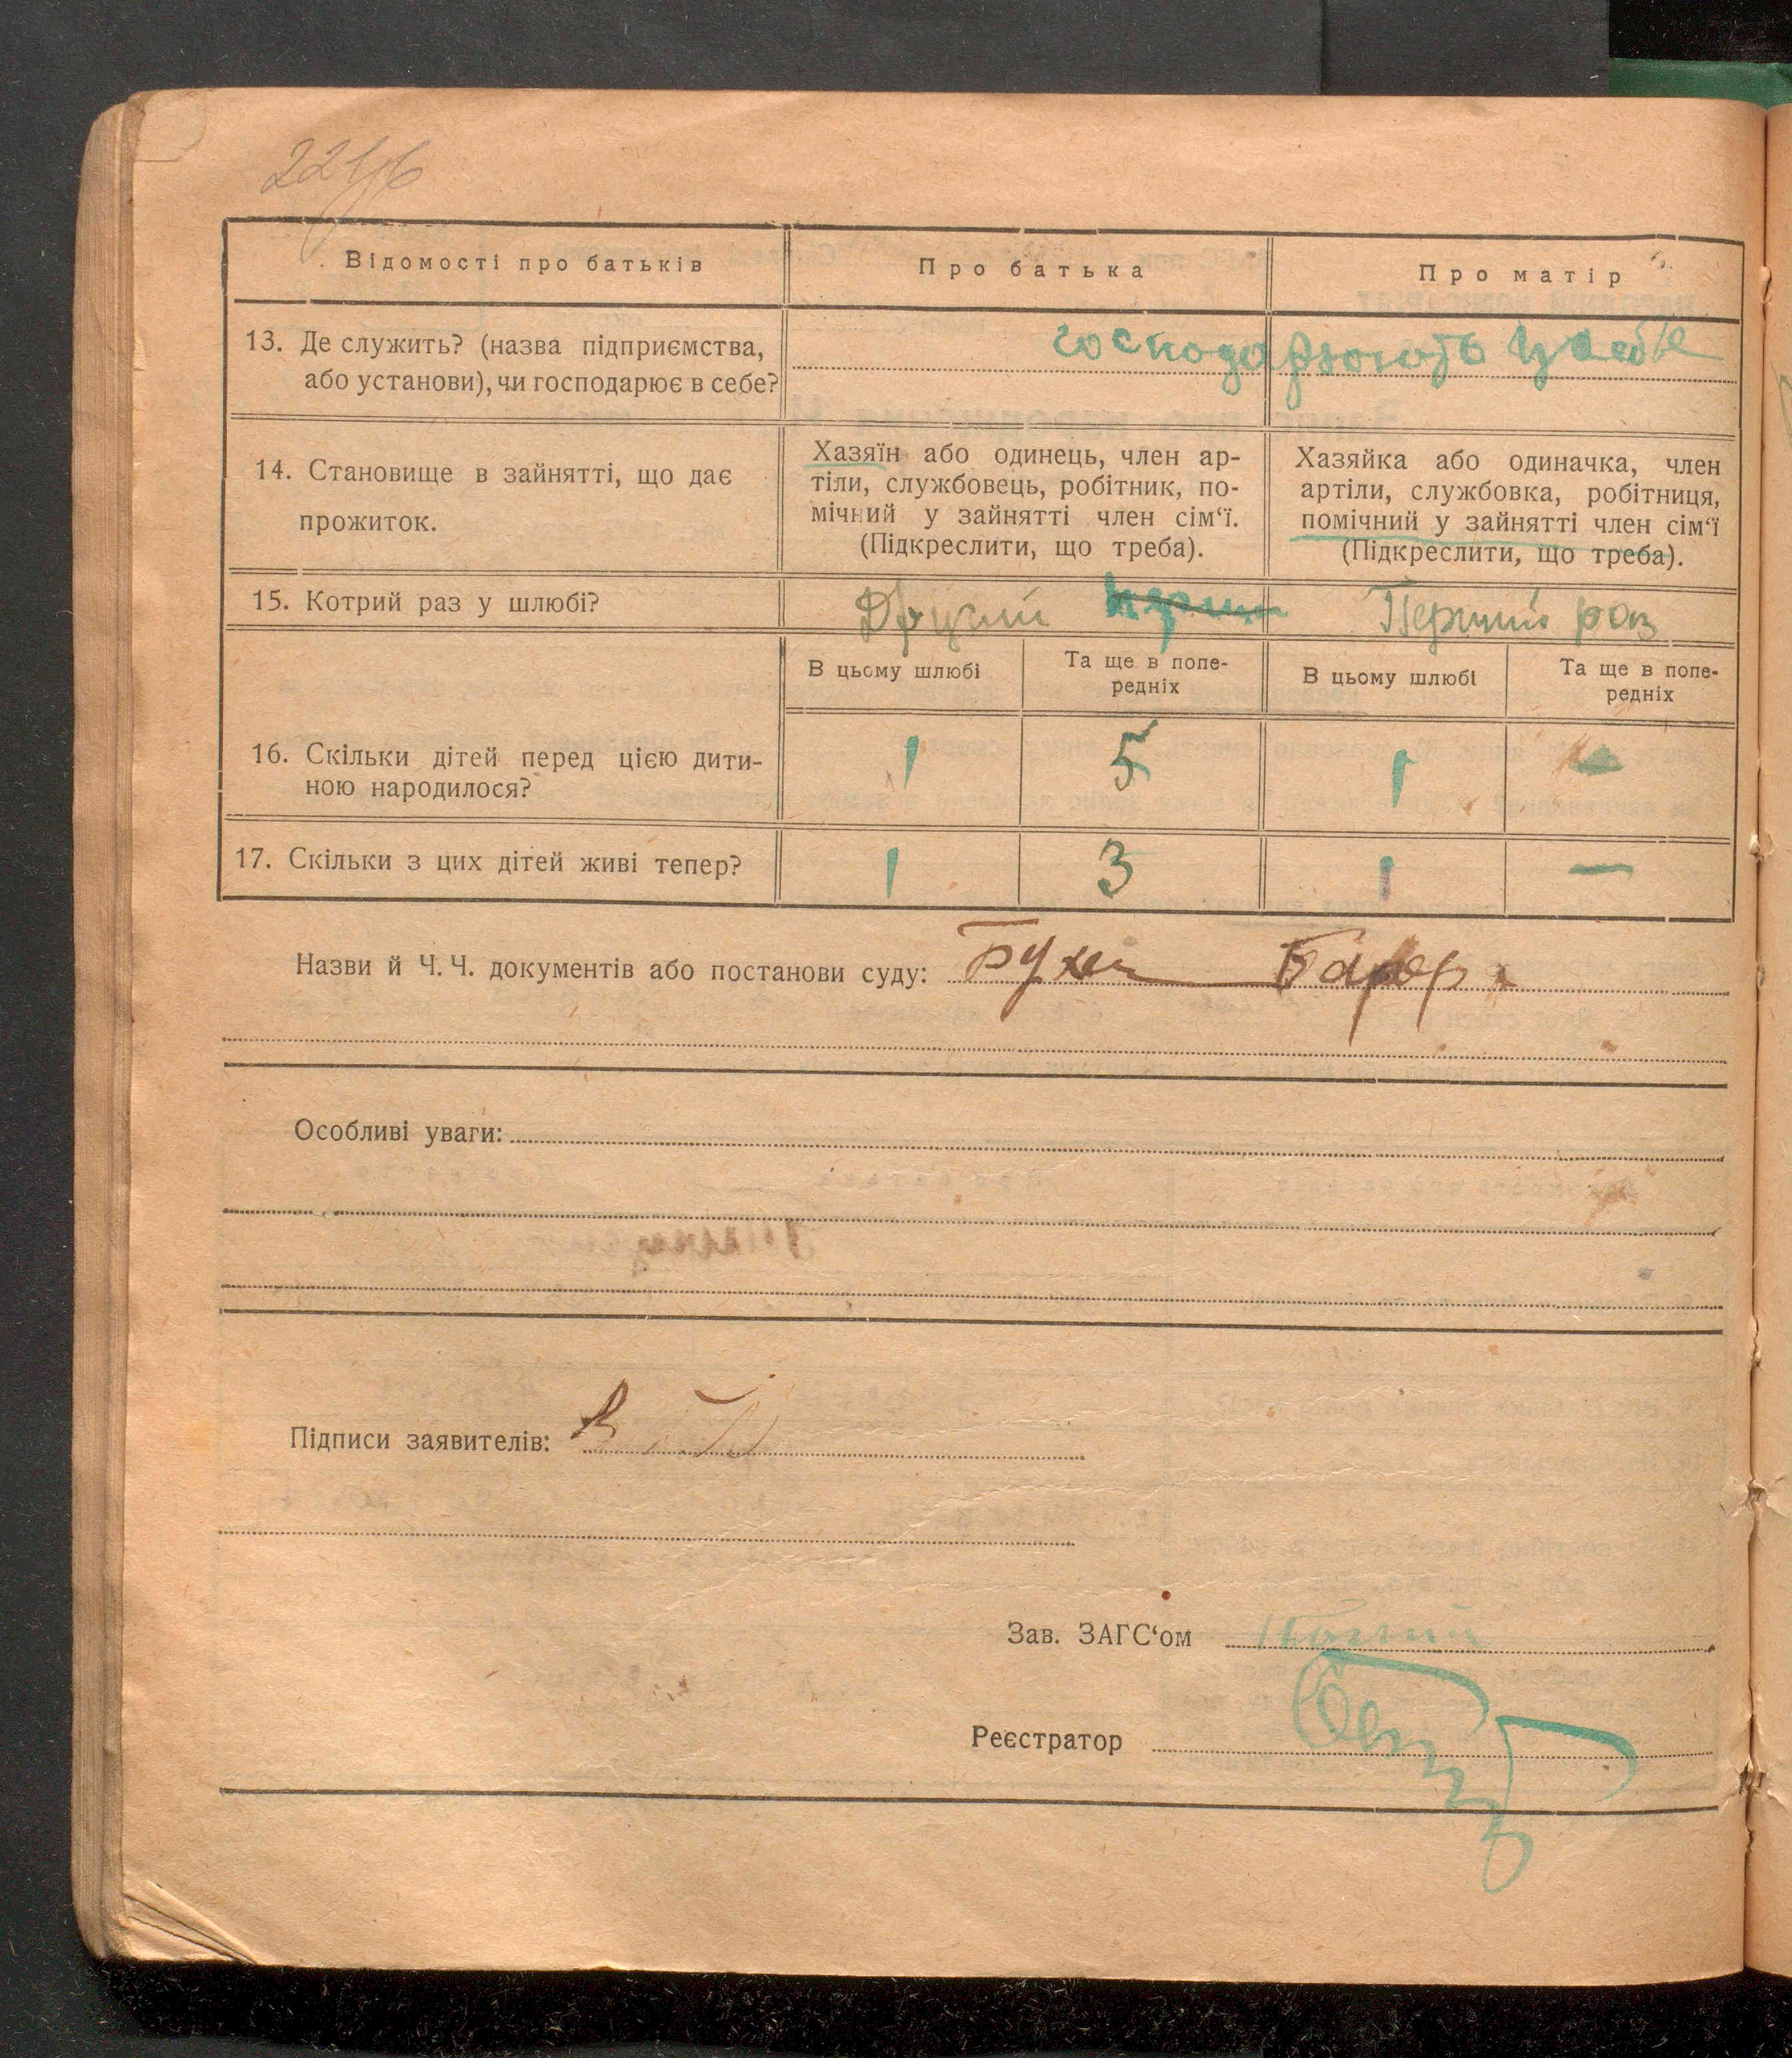 Відомості про батьків
Про батька
Про матір
13. Де служить? (назва підприємства,
або установи), чи господарює в себе?
господарюють у себе
14. Становище в зайнятті, що дає
прожиток.
Хазяїн або одинець, член ар-
тіли, службовець, робітник, по-
мічний у зайнятті член сім‘ї.
(Підкреслити, що треба).
Хазяйка або одиначка, член
артіли, службовка, робітниця,
помічний у зайнятті член сім‘ї
(Підкреслити, що треба).
15. Котрий раз у шлюбі?
Другий
Перший раз
В цьому шлюбі
Та ще в попе-
редніх
В цьому шлюбі
Та ще в попе-
редніх
16. Скільки дітей перед цією дити-
ною народилося?
1
5
1
—
17. Скільки з цих дітей живі тепер?
1
3
1
—
Назви й Ч. Ч. документів або постанови суду:
Особливі уваги:
Підписи заявителів:
Зав. ЗАГС‘ом
Реєстратор